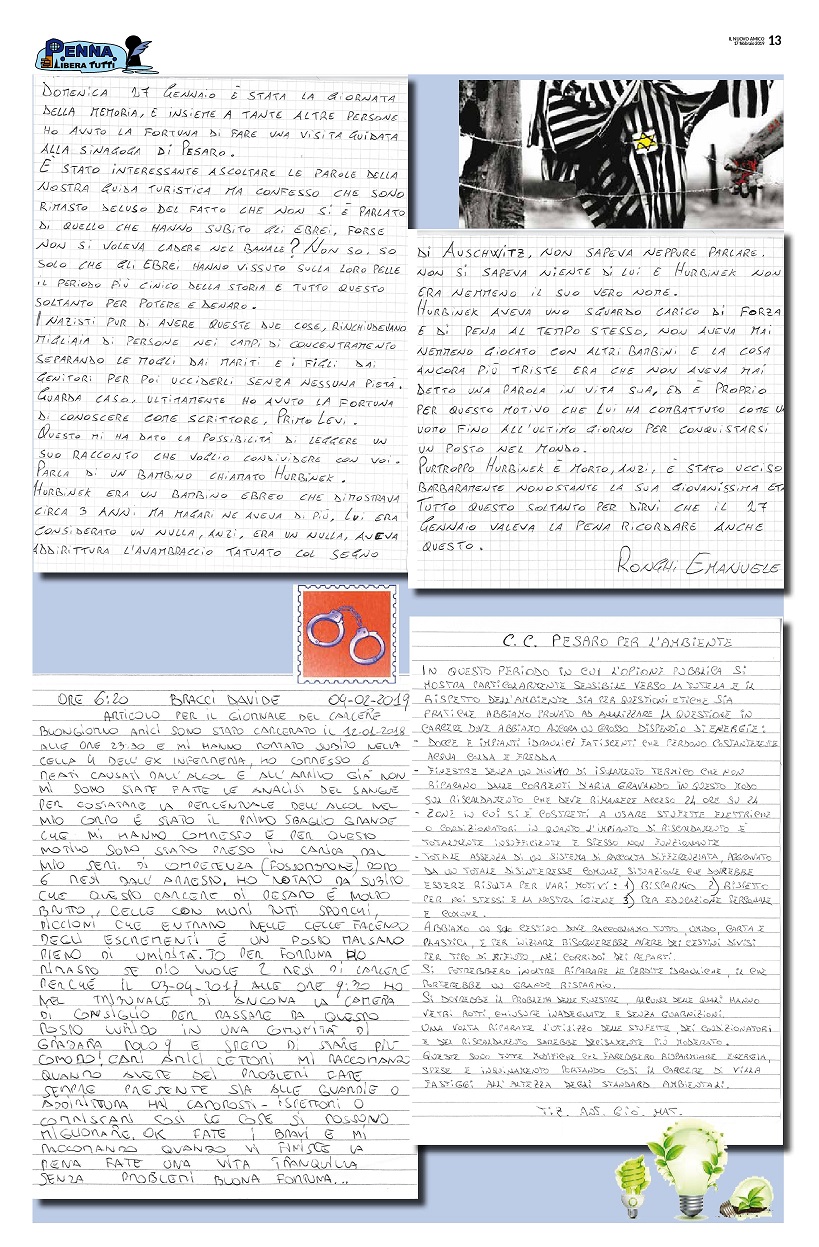 PENNA
LIBERA TUTTI
IL NUOVO AMICO
17 febbraio 2019
13
DOMENICA 27 GENNAIO È STATA LA GIORNATA
DELLA MEMORIA, E INSIEME A TANTE ALTRE PERSONE
HO AVUTO LA FORTUNA DI FARE UNA VISITA GUIDATA
ALLA SINAGOGA DI PESARO.
È STATO INTERESSANTE ASCOLTARE LE PAROLE DELLA
NOSTRA GUIDA TURISTICA MA CONFESSO CHE SONO
RIMASTO DELUSO DEL FATTO CHE NON SI È PARLATO
DI QUELLO CHE HANNO SUBITO GLI EBREI, FORSE
NON SI VOLEVA CADERE NEL BANALE? NON SO, SO
SOLO CHE GLI EBREI HANNO VISSUTO SULLA LORO PELLE
IL PERIODO PIÙ CINICO DELLA STORIA E TUTTO QUESTO
SOLTANTO PER POTERE E DENARO.
I NAZISTI PUR DI AVERE QUESTE DUE COSE, RINCHIUDEVANO
MIGLIAIA DI PERSONE NEI CAMPI DI CONCENTRAMENTO
SEPARANDO LE MOGLI DAI MARITI E I FIGLI DAI
GENITORI PER POI UCCIDERLI SENZA NESSUNA PIETÀ.
GUARDA CASO, ULTIMAMENTE HO AVUTO LA FORTUNA
DI CONOSCERE COME SCRITTORE, PRIMO LEVI.
QUESTO MI HA DATO LA POSSIBILITÀ DI LEGGERE UN
SUO RACCONTO CHE VOGLIO CONDIVIDERE CON VOI.
PARLA DI UN BAMBINO CHIAMATO HURBINEK.
HURBINEK ERA UN BAMBINO EBREO CHE DIMOSTRAVA
CIRCA 3 ANNI MA MAGARI NE AVEVA DI PIÙ, LUI ERA
CONSIDERATO UN NULLA, ANZI, ERA UN NULLA, AVEVA
ADDIRITTURA L'AVAMBRACCIO TATUATO COL SEGNO
DI AUSCHWITZ, NON SAPEVA NEPPURE PARLARE.
NON SI SAPEVA NIENTE DI LUI E HURBINEK NON
ERA NEMMENO IL SUO VERO NOME.
HURBINEK AVEVA UNO SGUARDO CARICO DI FORZA
E DI PENA AL TEMPO STESSO, NON AVEVA MAI
NEMMENO GIOCATO CON ALTRI BAMBINI E LA COSA
ANCORA PIÙ TRISTE ERA CHE NON AVEVA MAI
DETTO UNA PAROLA IN VITA SUA, ED È PROPRIO
PER QUESTO MOTIVO CHE LUI HA COMBATTUTO COME UN
UOMO FINO ALL'ULTIMO GIORNO PER CONQUISTARSI
UN POSTO NEL MONDO.
PURTROPPO HURBINEK È MORTO, ANZI, È STATO UCCISO
BARBARAMENTE NONOSTANTE LA SUA GIOVANISSIMA ETÀ
TUTTO QUESTO SOLTANTO PER DIRVI CHE IL 27
GENNAIO VALEVA LA PENA RICORDARE ANCHE
QUESTO.
RONGHI EMANUELE
ORE 6:20 BRACCI DAVIDE 04-02-2019
ARTICOLO PER IL GIORNALE DEL CARCERE
BUONGIORNO AMICI SONO STATO CARCERATO IL 12-01-2018
ALLE ORE 23.30 E MI HANNO PORTATO SUBITO NELLA
CELLA 4 DELL'EX INFERMERIA, HO COMMESSO 6
REATI CAUSATI DALL'ALCOL E ALL'ARRIVO GIÀ NON
MI SONO STATE FATTE LE ANALISI DEL SANGUE
PER COSTATARE LA PERCENTUALE DELL'ALCOL NEL
MIO CORPO È STATO IL PRIMO SBAGLIO GRANDE
CHE MI HANNO COMMESSO E PER QUESTO
MOTIVO SONO STATO PRESO IN CARICA DAL
MIO SERT. DI COMPETENZA (FOSSOMBRONE) DOPO
6 MESI DALL'ARRESTO. HO NOTATO DA SUBITO
CHE QUESTO CARCERE DI PESARO È MOLTO
BRUTTO, CELLE CON MURI TUTTI SPORCHI,
PICCIONI CHE ENTRANO NELLE CELLE FACENDO
DEGLI ESCREMENTI È UN POSTO MALSANO
PIENO DI UMIDITÀ. IO PER FORTUNA HO
RIMASTO SE DIO VUOLE 2 MESI DI CARCERE
PERCHÉ IL 03-04-2019 ALLE ORE 9:30 HO
NEL TRIBUNALE DI ANCONA LA CAMERA
DI CONSIGLIO PER PASSARE DA QUESTO
POSTO LURIDO IN UNA COMUNITÀ DI
GRADARA POLO 9 E SPERO DI STARE PIÙ
COMODO! CARI AMICI LETTORI MI RACCOMANDO
QUANDO AVETE DEI PROBLEMI FATE
SEMPRE PRESENTE SIA ALLE GUARDIE O
ADDIRITTURA HAI CAPOPOSTI - ISPETTORI O
COMMISSARI COSÌ LE COSE SI POSSONO
MIGLIORARE. OK FATE I BRAVI E MI
RACCOMANDO QUANDO VI FINISCE LA
PENA FATE UNA VITA TRANQUILLA
SENZA PROBLEMI BUONA FORTUNA...
C.C. PESARO PER L'AMBIENTE
IN QUESTO PERIODO IN CUI L'OPIONE PUBBLICA SI
MOSTRA PARTICOLARMENTE SENSIBILE VERSO LA TUTELA E IL
RISPETTO DELL'AMBIENTE SIA PER QUESTIONI ETICHE SIA
PRATICHE ABBIAMO PROVATO AD ANALIZZARE LA QUESTIONE IN
CARCERE DOVE ABBIAMO ANCORA UN GROSSO DISPENDIO DI ENERGIE:
- DOCCE E IMPIANTI IDRAULICI FATISCENTI CHE PERDONO COSTANTEMENTE
ACQUA CALDA E FREDDA
- FINESTRE SENZA UN MINIMO DI ISOLAMENTO TERMICO CHE NON
RIPARANO DALLE CORRENTI D'ARIA GRAVANDO IN QUESTO MODO
SUL RISCALDAMENTO CHE DEVE RIMANERE ACCESO 24 ORE SU 24
- ZONE IN CUI SI È COSTRETTI A USARE STUFETTE ELETTRICHE
O CONDIZIONATORI IN QUANTO L'IMPIANTO DI RISCALDAMENTO È
TOTALMENTE INSUFFICIENTE E SPESSO NON FUNZIONANTE
- TOTALE ASSENZA DI UN SISTEMA DI RACCOLTA DIFFERENZIATA, AGGRAVATO
DA UN TOTALE DISINTERESSE COMUNE SITUAZIONE CHE DOVREBBE
ESSERE RISOLTA PER VARI MOTIVI: 1) RISPARMIO 2) RISPETTO
PER NOI STESSI E LA NOSTRA IGIENE 3) PER EDUCAZIONE PERSONALE
E COMUNE.
ABBIAMO UN SOLO CESTINO DOVE RACCOGLIAMO TUTTO, UMIDO, CARTA E
PLASTICA, E PER INIZIARE BISOGNEREBBE AVERE DEI CESTINI DIVISI
PER TIPO DI RIFIUTO, NEI CORRIDOI DEI REPARTI.
SI POTREBBERO INOLTRE RIPARARE LE PERDITE IDRAULICHE, IL CHE
PORTEREBBE UN GRANDE RISPARMIO.
SI DOVREBBE IL PROBLEMA DELLE FINESTRE, ALCUNE DELLE QUALI HANNO
VETRI ROTTI, CHIUSURE INADEGUATE E SENZA GUARNIZIONI.
UNA VOLTA RIPARATE L'UTILIZZO DELLE STUFETTE, DEI CONDIZIONATORI
E DEL RISCALDAMENTO SAREBBE DECISAMENTE PIÙ MODERATO.
QUESTE SONO TUTTE MODIFICHE CHE FAREBBERO RISPARMIARE ENERGIA,
SPESE E INQUINAMENTO PORTANDO COSÌ IL CARCERE DI VILLA
FASTIGGI ALL'ALTEZZA DEGLI STANDARD AMBIENTALI.
TIZ. ANT. GIO. MAT.